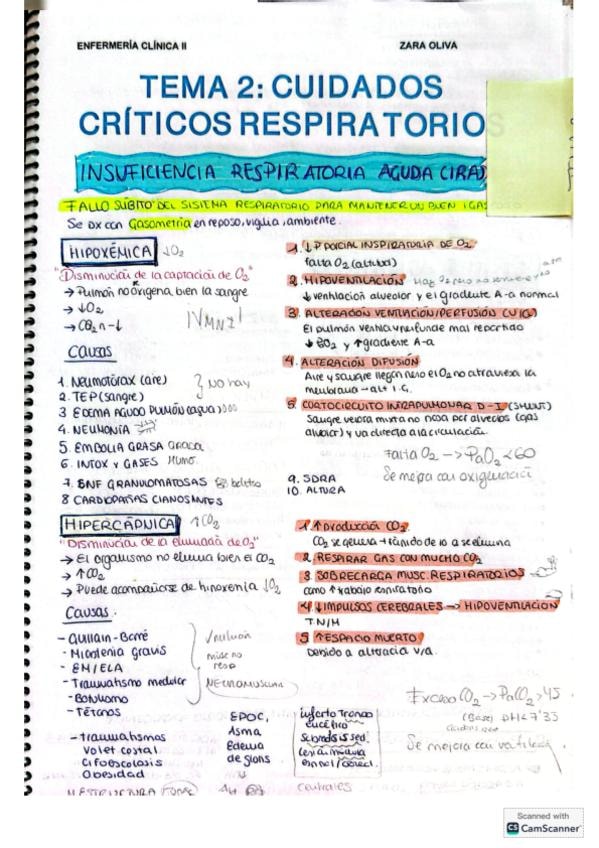 ENFERMERÍA CLÍNICA II
ZARA OLIVA
TEMA 2: CUIDADOS
CRÍTICOS RESPIRATORIOS
INSUFICIENCIA RESPIRATORIA AGUDA (IRA)
FALLO SÚBITO DEL SISTEMA RESPIRATORIO PARA MANTENER UN BUEN
Se DX con Gasometría en reposo, vigilia, ambiente.
HIPOXÉMICA ↓O2
"Disminución de la captación de O2"
→ Pulmón no oxigena bien la sangre
→ ↓O2
→ CO2 n-↓
¡VMNI!
Causas
1. Neumotórax (aire)
2. TEP (sangre)
No hay
3 EDEMA AGUDO PULMÓN (agua)
4. NEUMONÍA
5. EMBOLIA GRASA Grasa
6. INTOX Y GASES Humo.
7. ENF GRANULOMATOSAS
8 CARDIOPATÍAS CIANOSANTES
1. ↓P PARCIAL INSPIRATORIA DE O2
falta O2 (altura)
2. HIPOVENTILACIÓN
↓ ventilación alveolar y el gradiente A-a normal
3. ALTERACIÓN VENTILACIÓN/PERFUSIÓN
El pulmón ventila y perfunde mal repartido
y ↑ gradiente A-a
4. ALTERACIÓN DIFUSIÓN
Aire y sangre llegan pero el O2 no atraviesa la
membrana → alt I.G.
5. CORTOCIRCUITO INTRAPULMONAR D-I (SHUNT)
Sangre venosa mixta no pasa por alveolos
y va directo a la circulación.
Falta O2 → PaO2 < 60
Se mejora con oxigenación
9. SDRA
10. ALTURA
HIPERCÁPNICA ↑CO2
"Disminución de la eliminación de O2"
→ El organismo no elimina bien el CO2
→ ↑CO2
→ Puede acompañarse de hipoxemia ↓O2
Causas.
- Guillain-Barré
- Miastenia gravis
- EM/ELA
- Traumatismo medular
- Botulismo
- Tétanos
NEUROMUSCULAR
- Traumatismos
Volet costal
Cifoescoliosis
Obesidad
EPOC,
Asma
Edema
de glotis
infarto Tronco
encéfalo
1 ↑ Producción CO2
CO2 se genera + rápido de lo q se elimina
2 RESPIRAR GAS CON MUCHO CO2
3 SOBRECARGA MUSC. RESPIRATORIOS
como ↑ trabajo respiratorio
4 ↓ IMPULSOS CEREBRALES → HIPOVENTILACIÓN
5 ↑ ESPACIO MUERTO
Debido a alteración V/Q.
Exceso CO2 → PaCO2 > 45
Se mejora con
centrales
Scanned with
CS CamScanner